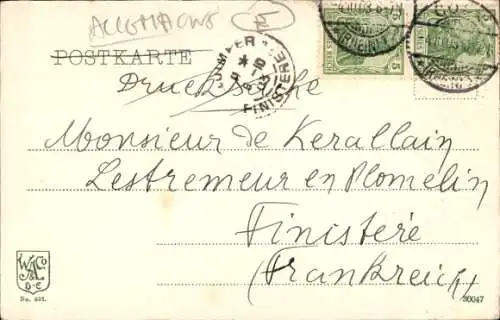 ALLEMAGNE
POSTKARTE
Drucksache
QUIMPER
FINISTERE
(RHEIN)
Monsieur de Kerallain
Lestremeur en Plomelin
Finistère
(Frankreich)
W & Co
D-C
No. 401.
30047